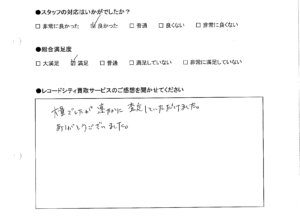 ●スタッフの対応はいかがでしたか？
□ 非常に良かった ☑ 良かった □ 普通 □ 良くない □ 非常に良くない
●総合満足度
□ 大満足 ☑ 満足 □ 普通 □ 満足していない □ 非常に満足していない
●レコードシティ買取サービスのご感想を聞かせてください
大量でしたが 速やかに 査定していただけました。
ありがとうございました。